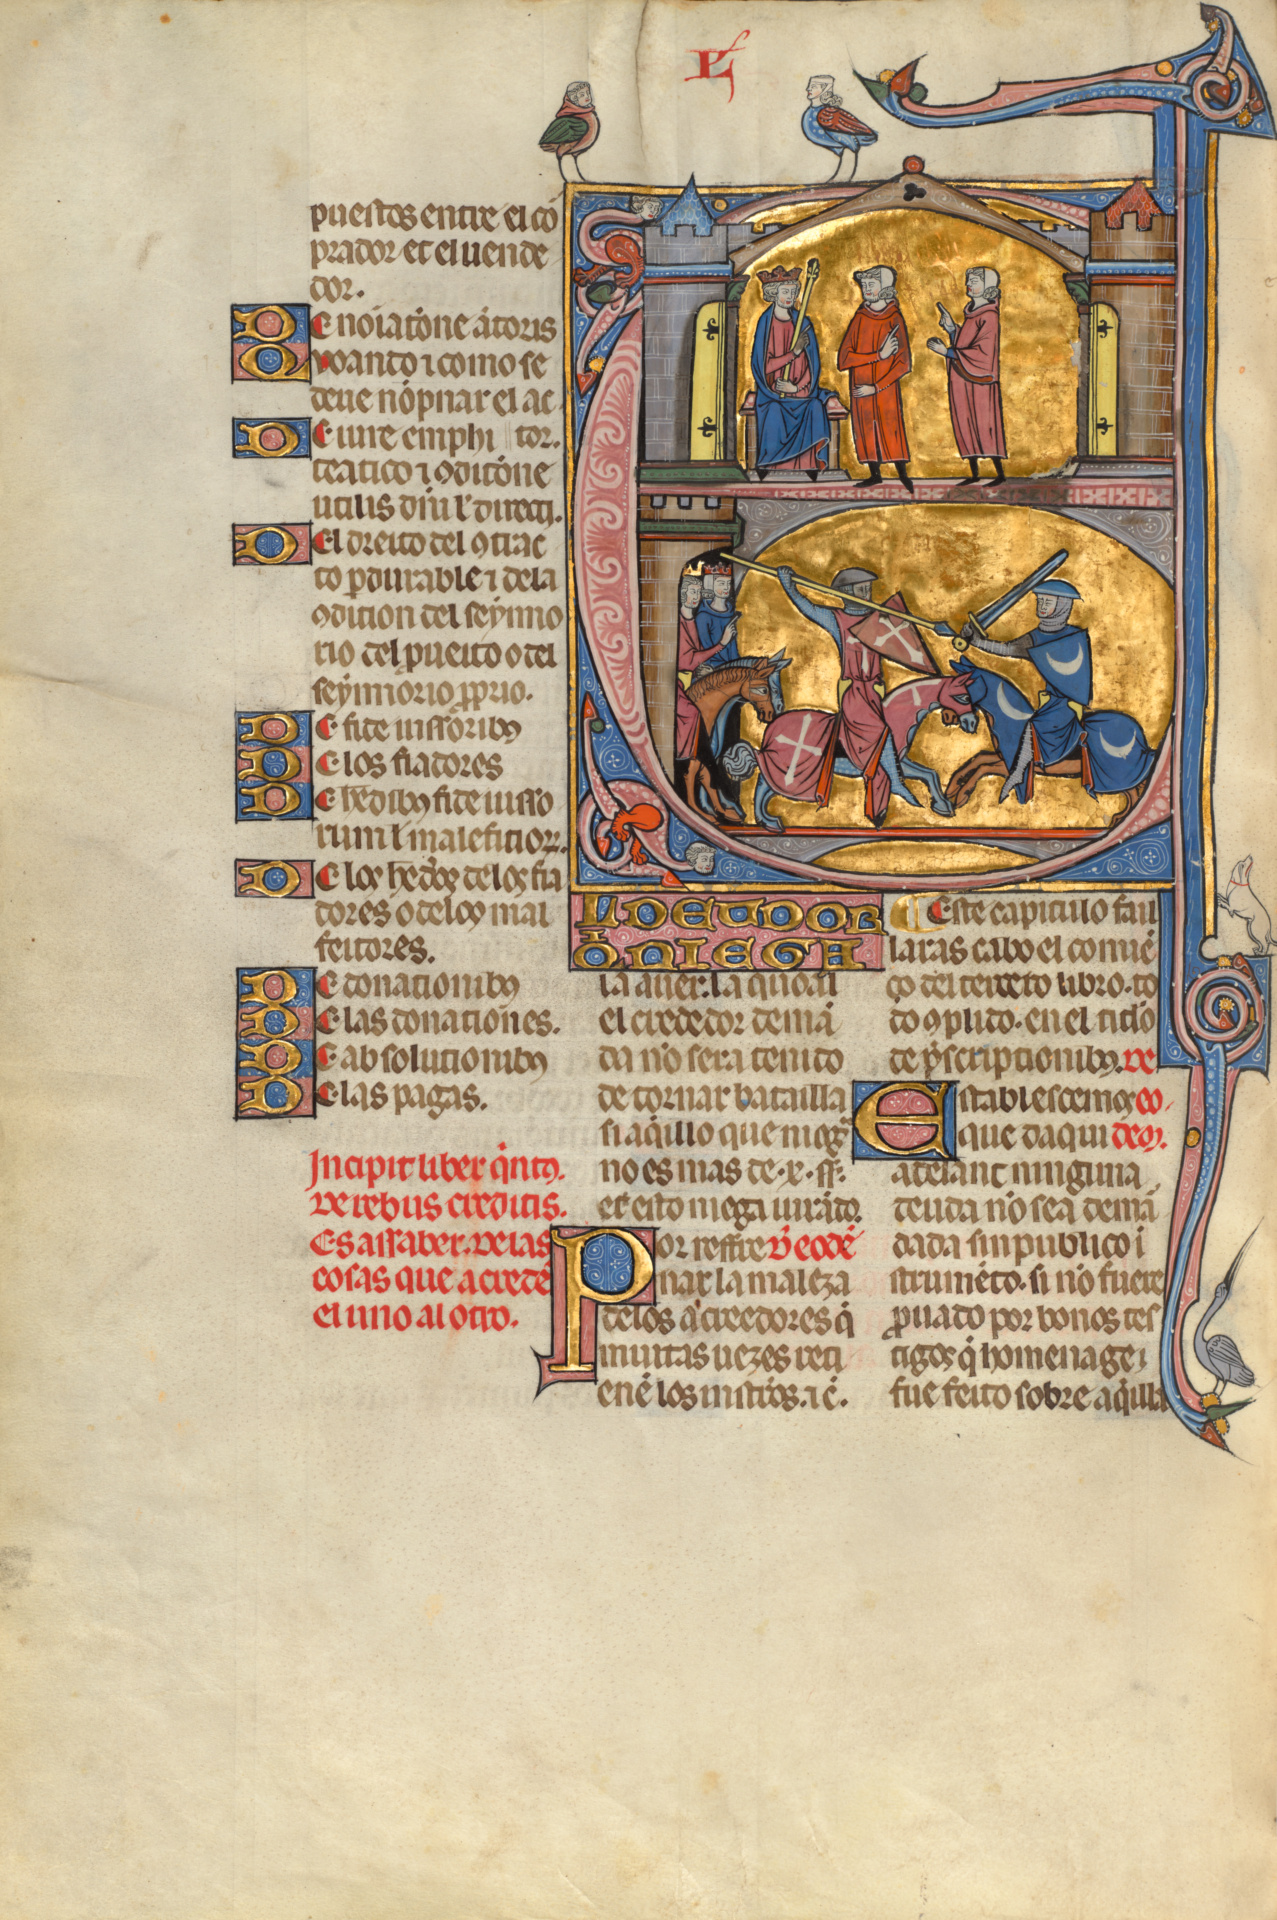 puestos entre el cõ
prador et el uende
dor.
De noĩatiõne ãtoris
Quando ⁊ como se
deue nõpnar el ac
De iure emphi tor.
teatico ⁊ ꝯditiõne
utilis dñii ł directi.
Del dreito del ꝯtrac
to perdurable ⁊ dela
ꝯdition del seynno
rio del pueito o del
seynnorio proprio.
De fide iussoribꝯ
De los fiadores
De hedibꝯ fide iusso
rum ł maleficioꝝ.
De los hedõs de los fia
dores o de los mal
feitores.
De donationibꝯ
De las donationes.
De absolutionibꝯ
De las pagas.
Incipit liber q̃ntꝯ.
De rebus creditis.
Es assaber. de las
cosas que acredẽ
el uno al otro.
EL DEUDOR
Q̃ NIEGA
la auer. la quoal
el crededor demã
da no sera tenido
de tornar batailla
si aq̃illo que niega
no es mas de .x. ss.
et esto niega iurãdo.
Por reffre D̃ eodẽ
nar la maleza
delos acreedores q̃
muitas uezes reti
enẽ los instros. ⁊ c̃.
Este capitulo fail
laras cabo el comiẽ
ço del terceto libro. to
do ꝯplido. en el titlo
de p̃scriptionibꝯ. De
Establescemos eo
que daqui dem.
adelant ninguna
deuda no sea demã
dada sin publico ĩ
strumẽto. si no fuere
prouado por bonos tes
tigos q̃ homenage
fue feito sobre aq̃illa